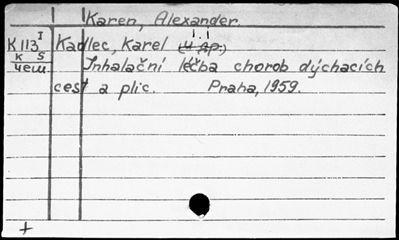 Karen, Alexander.
K 113 I Kadlec, Karel (и др.)
K 5
чеш. Inhalační léčba chorob dýchacích
cest a plic. Praha, 1959.
+